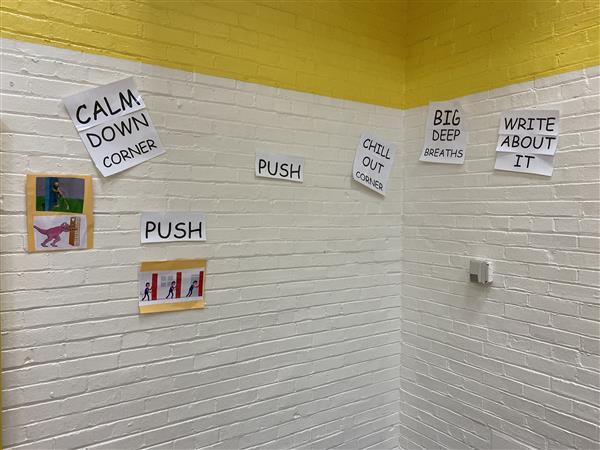 CALM
DOWN
CORNER
PUSH
PUSH
CHILL
OUT
CORNER
BIG
DEEP
BREATHS
WRITE
ABOUT
IT